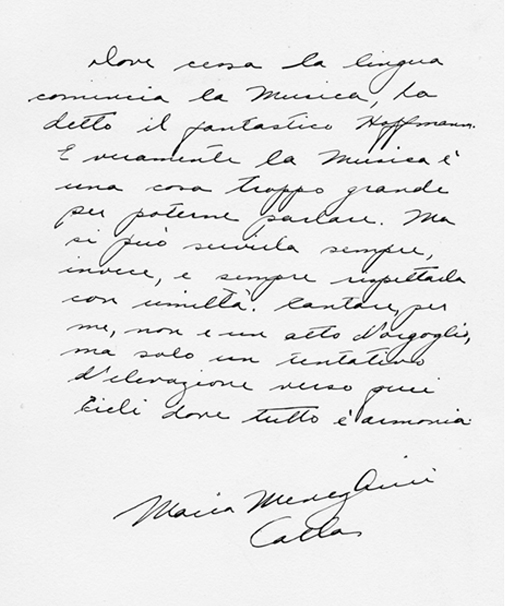 dove cessa la lingua
comincia la Musica, ha
detto il fantastico Hoffmann.
E veramente la Musica è
una cosa troppo grande
per poterne parlare. Ma
si può servirla sempre,
invece, e sempre rispettarla
con umiltà. Cantare, per
me, non e un atto d'orgoglio,
ma solo un tentativo
d'elevazione verso quei
Cieli dove tutto è armonia.
Maria Meneghini
Callas